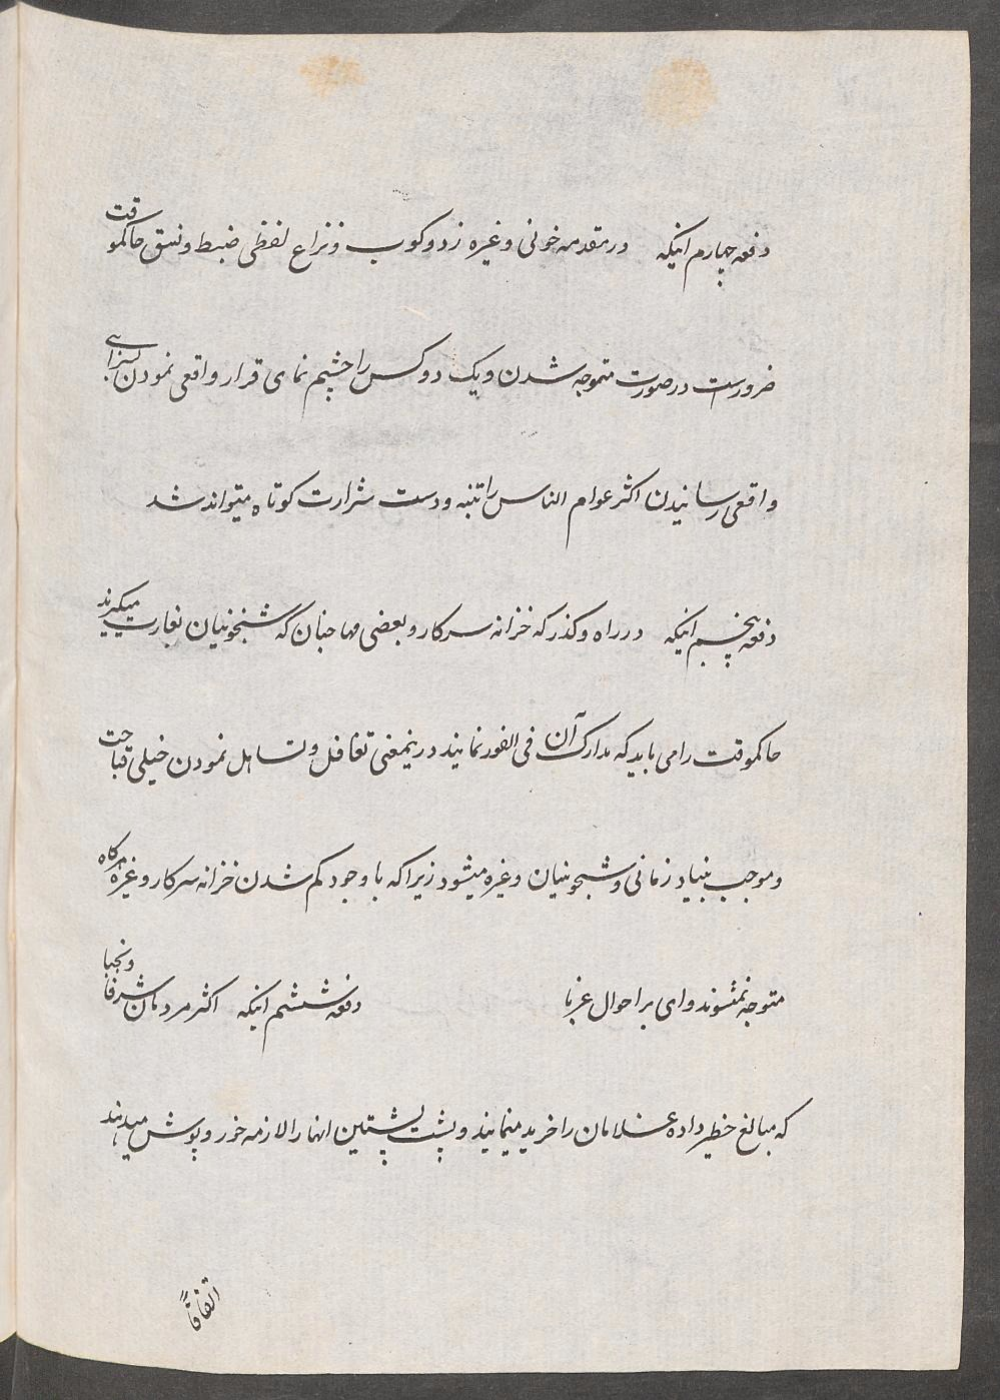 دفعه چهارم اینکه در مقدمه خونی و غیره زد و کوب و نزاع لفظی ضبط و نسق حاکموقت
ضرورست درصورت متوجه شدن و یک دو کس را چشم نمای قرار واقعی نمودن بسزای
واقعی رسانیدن اکثر عوام الناس را تنبه و دست شرارت کوتاه میتواند شد
دفعه پنجم اینکه در راه و کذر که خزانه سرکار و بعضی مهاجنان که شبخونیان بغارت میکیرند
حاکموقت را می باید که مدارک آن فی الفور نمایند درینمعنی تغافل و تساهل نمودن خیلی قباحت
و موجب بنیاد زمانی و شبخونیان و غیره میشود زیرا که باوجود کم شدن خزانه سرکار و غیره هرکاه
متوجه نمیشوند وای بر احوال غربا دفعه ششم اینکه اکثر مردمان شرفا و نجبا
که مبالغ خطیر داده غلامان را خرید مینمایند و پشت بپشتین انها را لازمه خور و پوش میدهند
اتفاقاً